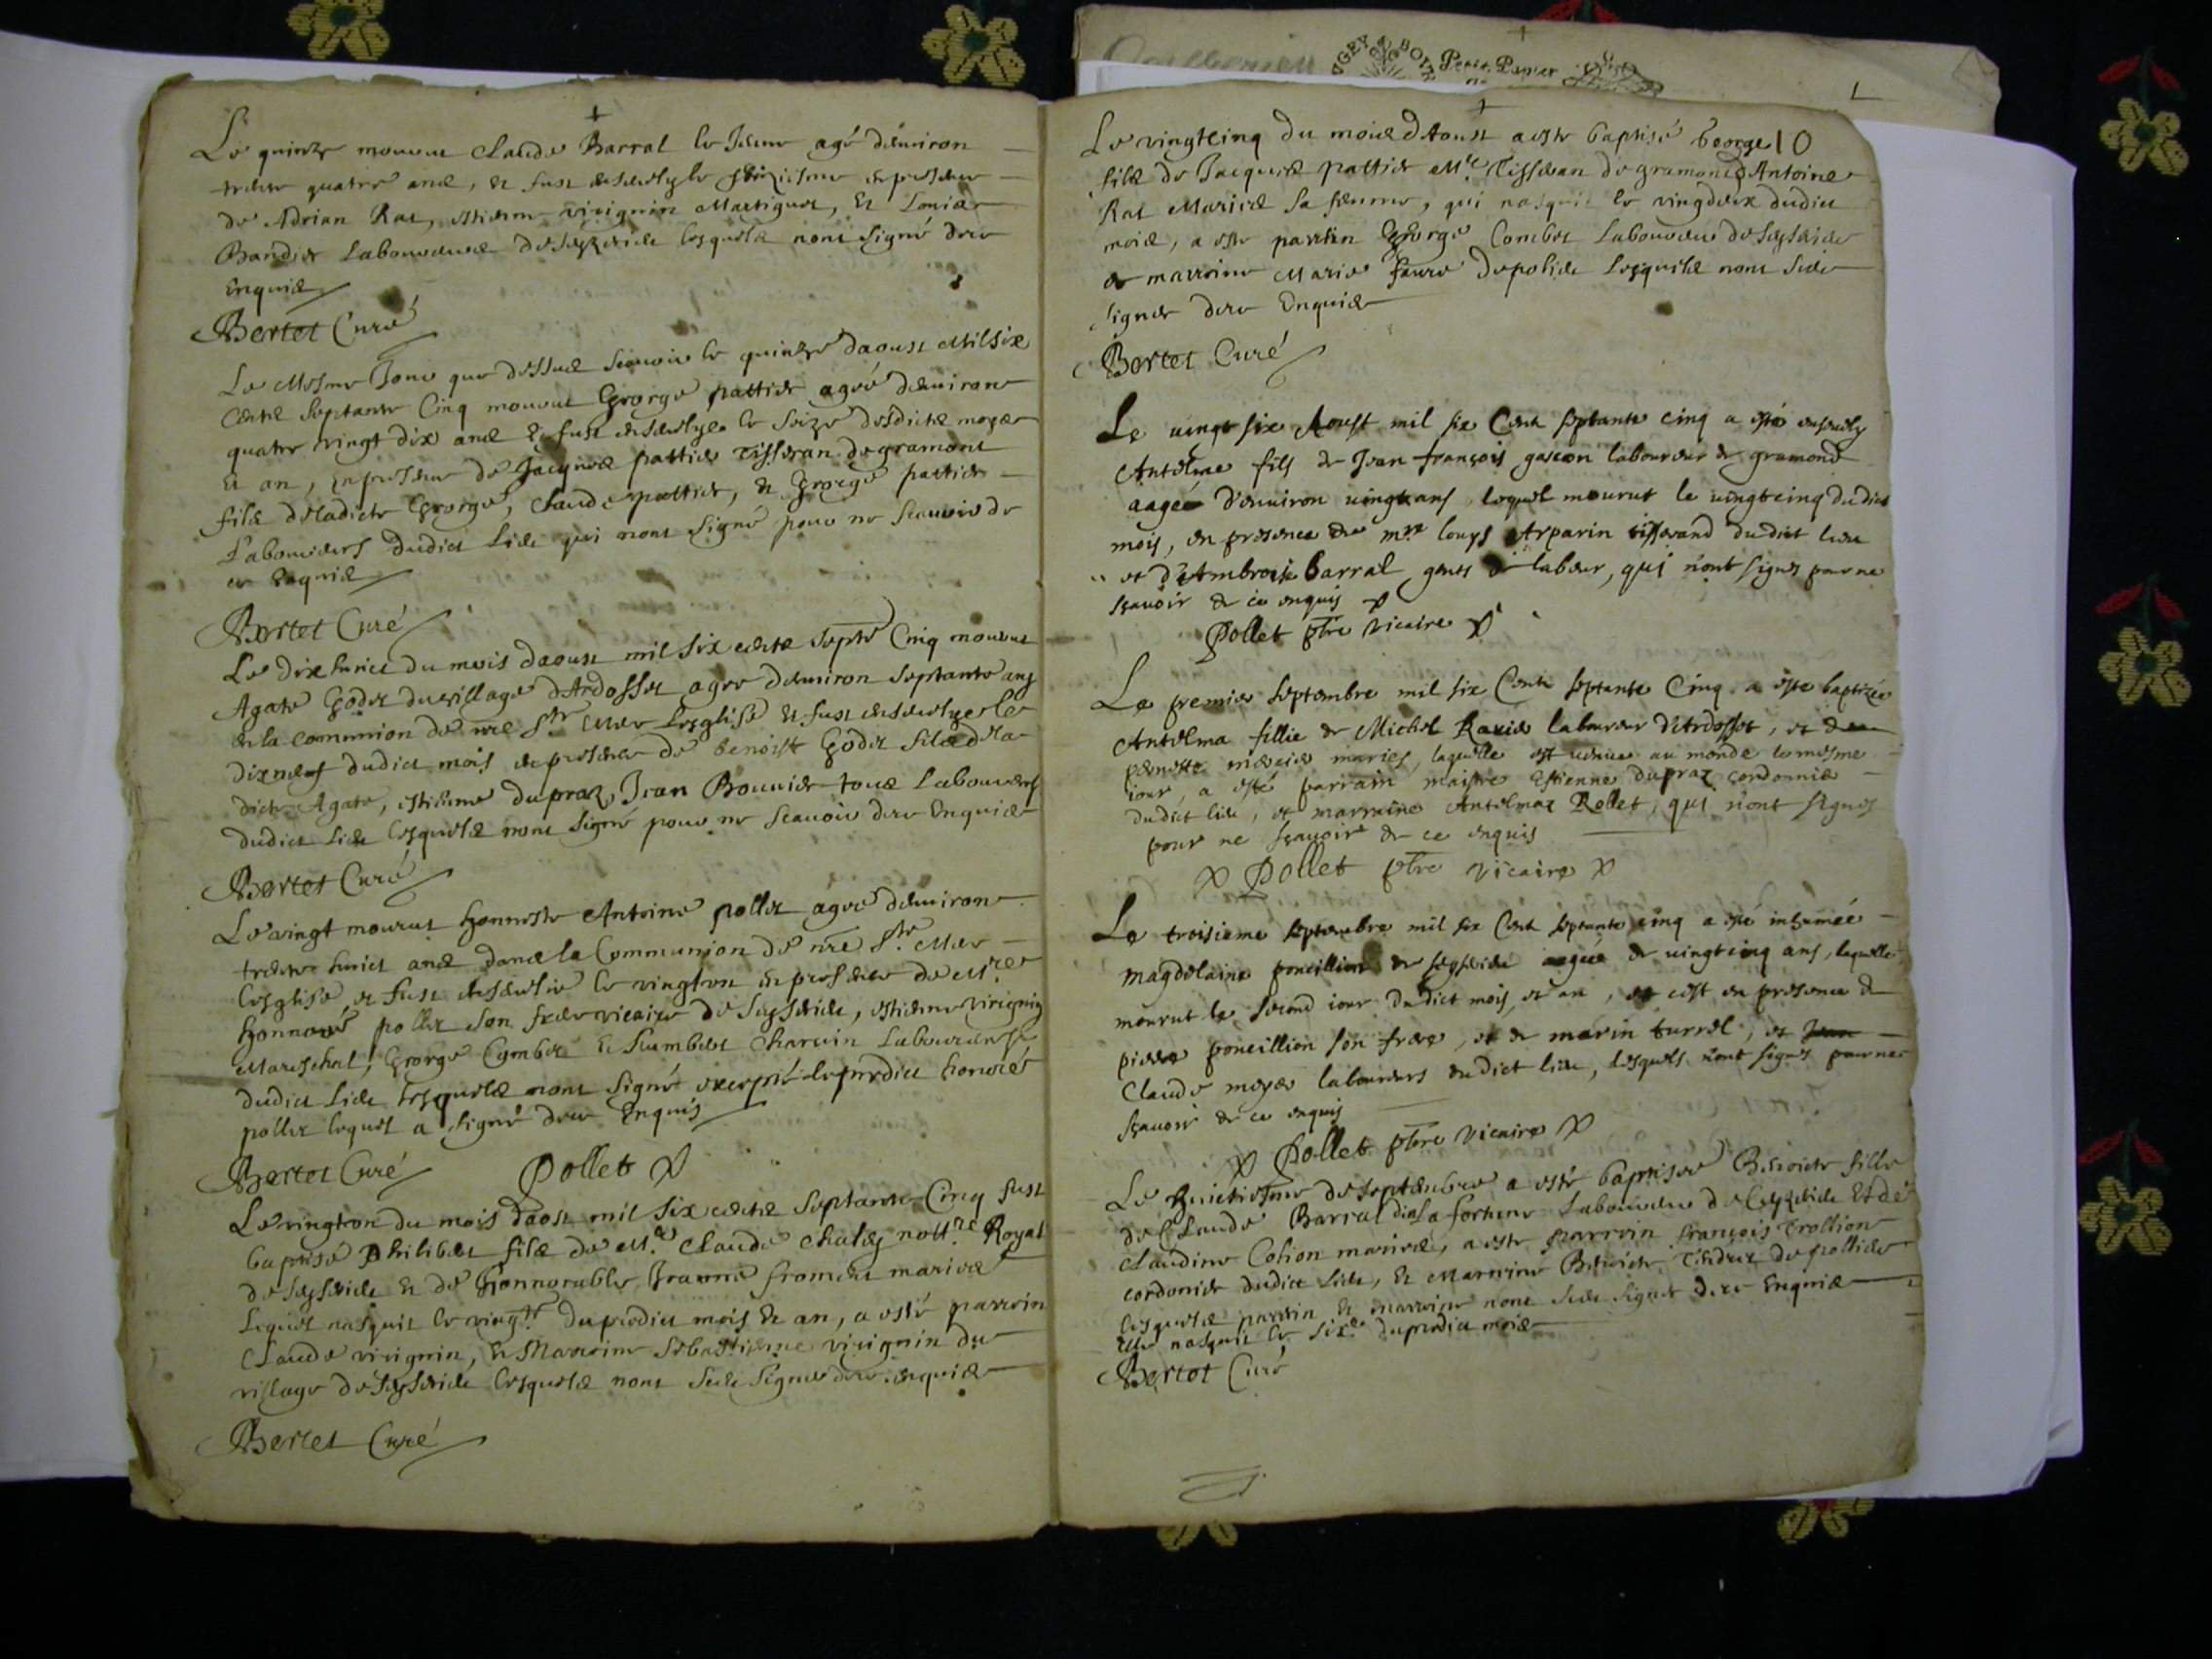 Le quinze mourut Claude Barral le Jeune agé d'enuiron
trente quatre ans, et fust enseuely le seiziesme en presence
de Adrian Rat, estienne virignin Martignat, et Louis
Bandier Laboureurs de Seyzerieu lesquels n'ont signé de ce
Enquis
Bertet Curé
Le Mesme Jour que dessus scauoir le quinze daoust Mil Six
Cents Septante Cinq mourut George pattier agée denuiron
quatre vingt dix ans et fust enseuelye le seize desdicts moys
et an, en presence de Jacques pattier Tisseran de gramont
fils de ladicte George, Claude pattier, et George pattier
Laboureurs dudict Lieu qui n'ont signé pour ne scauoir de
ce Enquis
Bertet Curé
Le dix huict du mois daoust mil six cents septte Cinq mourut
Agate Godet du village d'Ardosset agee denuiron septante ans
en la comunion de nre Ste Mere Lesglise et fust enseuelye le
dix neuf dudict mois en presence de benoist Godet fils de la
dicte Agate, estienne dupraz, Jean Bouuier tous Laboureurs
dudict Lieu lesquels n'ont signé pour ne scauoir de ce Enquis
Bertet Curé
Le vingt mourut honneste Antoine pollet agee denuiron
trente huict ans dans la Communion de nre Ste Mere
lesglise, et fust enseuelie le vingt vn en presence de Mre
honnoré pollet son frere vicaire de Seyserieu, estienne virignin
Mareschal, George Combet et humbert Charuin Laboureurs
dudict Lieu lesquels n'ont signé excepté le susdict honoré
pollet lequel a signé de ce Enquis
Bertet Curé Pollet
Le vingt vn du mois daost mil six cents septante Cinq fust
baptisé Philibert fils de Mre Claude Chaley nottre Royal
de Seyserieu et de honnorable Jeanne froment mariés
Lequel nasquit le vingt dupredict mois et an, a esté parrein
Claude virignin, et Marreine Sebastienne virignin du
village de Seyserieu lesquels n'ont sceu signer de ce enquis
Bertet Curé
10
Le vingtcinq du mois d'Aoust a este baptisé George
fils de Jacques pattier Me Tisseran de gramont & Antoine
Rat Mariés sa femme, qui nasquit le vingdeux dudict
mois, a este parrin George Combet Laboureur de Seyserieu
et marrine Marie faure de polieu lesquels n'ont sceu
signer de ce Enquis
Bertet Curé
Le uingt six Aoust mil six Cent septante cinq a esté enseuely
Antelme fils de Jean françois gascon laboureur de gramond
aagé d'enuiron uingt ans, lequel mourut le uingtcinq dudict
mois, en presence de mre Louys Arparin tisserand dudict lieu
et d'Ambroise barral gens de labeur, qui n'ont signes pour ne
sçauoir de ce enquis
Pollet ptre vicaire
Le premier septembre mil six Cent septante Cinq a este baptizée
Antelma fillie de Michel Rauier laboureur d'Ardosset, et de
pernette mercier mariés, laquelle est uenue au monde le mesme
iour, a esté parrain maistre Estienne dupraz cordonnier
dudict lieu, et marraine Antelmaz Rollet, qui n'ont signes
pour ne sçauoir de ce enquis
Pollet ptre vicaire
Le troisieme septembre mil six Cent septante cinq a esté inhumée
magdelaine poncillion de seyserieu aagée de uingtcinq ans, laquelle
mourut le second iour dudict mois, et an, et c'est en presence de
pierre poncillion son frere, et de marin turrel, et Jean
Claude moyer laboureurs dudict lieu, lesquels n'ont signes pour ne
sçauoir de ce enquis
Pollet ptre vicaire
Le huictiesme de septembre a esté baptisee Benoite fille
de Claude Barral dict La fortune Laboureur de Ceyzerieu Et de
Claudine Cohon mariés, a este parrein françois Trollion
cordonier dudict Lieu, et Marreine Benoite Tendret de pollieu
lesquels parrein et marreine n'ont sceu signer de ce Enquis
Elle nasquit le sixe dupredict mois
Bertet Curé